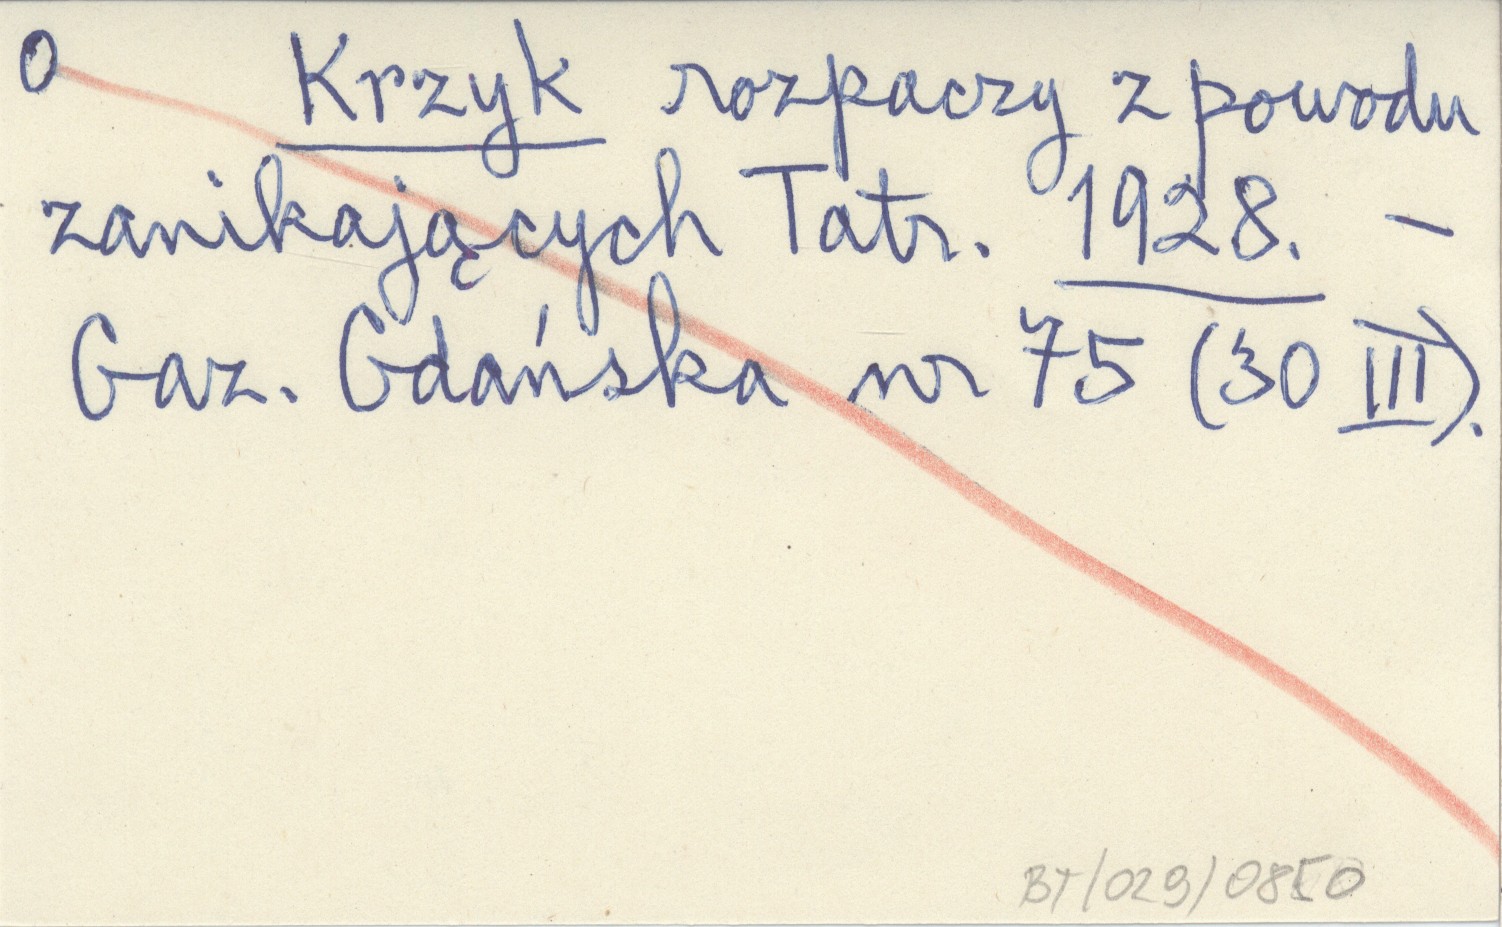 O Krzyk rozpaczy z powodu
zanikających Tatr. 1928. –
Gaz. Gdańska nr 75 (30 III).
BT/029/0850